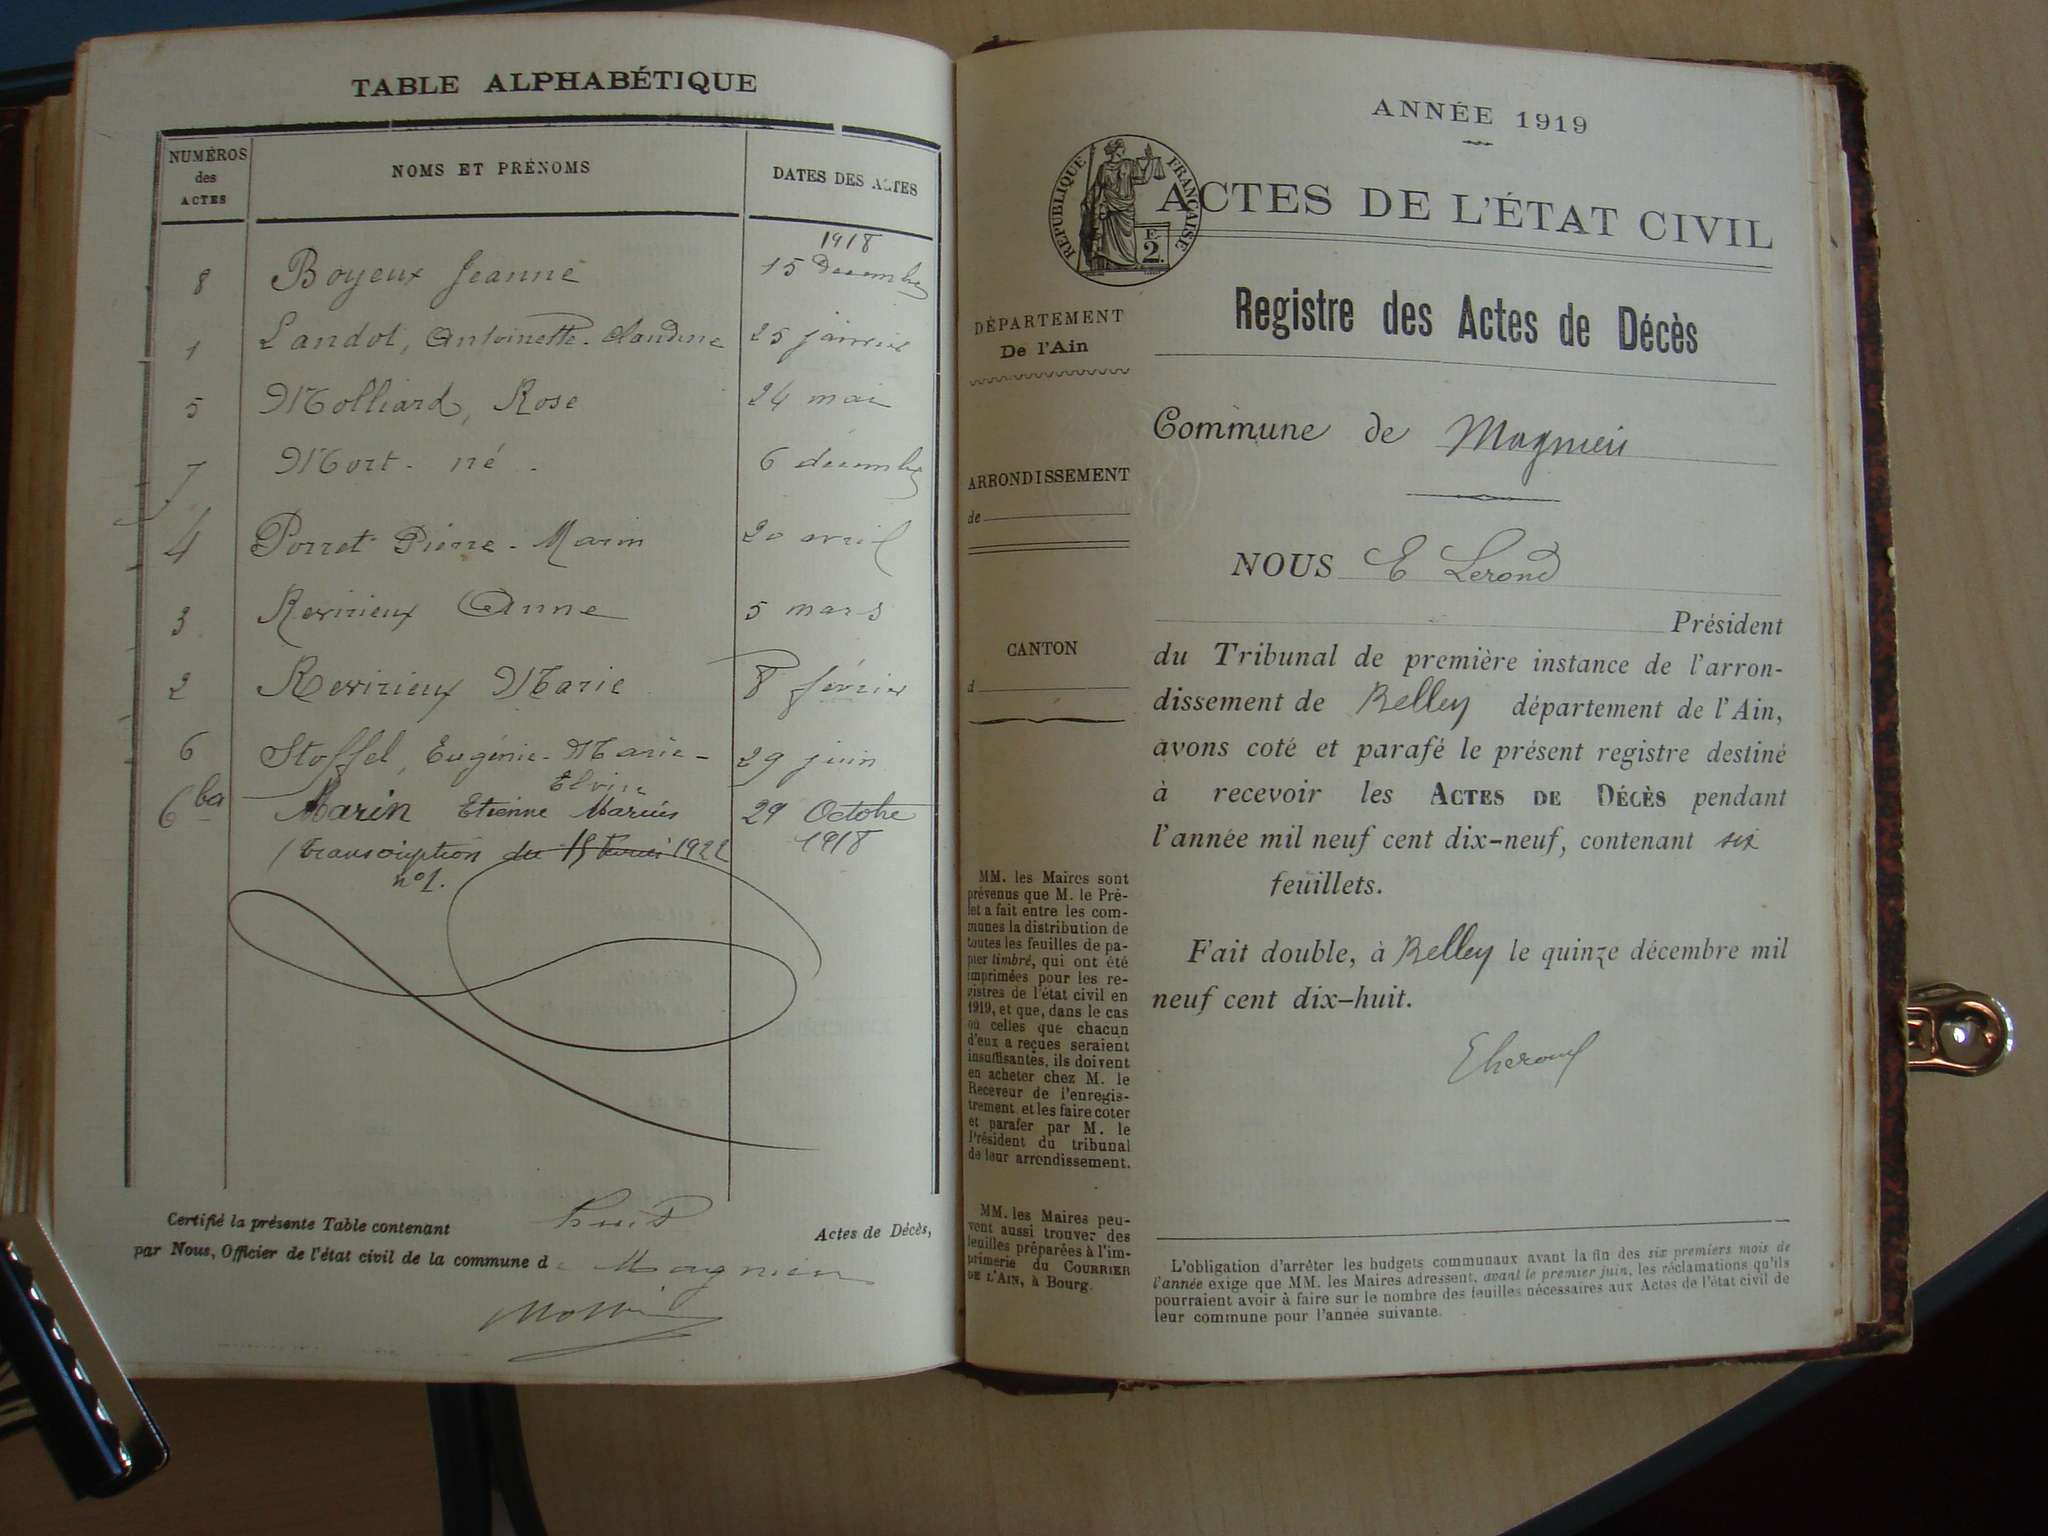 TABLE ALPHABÉTIQUE
NUMÉROS des ACTES
NOMS ET PRÉNOMS
DATES DES ACTES
1918
8 Boyeux Jeanne 15 Decembre
1 Landot, Antoinette-Claudine 25 janvier
5 Molliard, Rose 24 mai
7 Mort-né - 6 décembre
4 Porret Pierre-Marin 20 avril
3 Revirieux Anne 5 mars
2 Revirieux Marie 8 février
6 Stoffel, Eugénie-Marie-Elvire 29 juin
6 bis Marin Etienne Marius 29 Octobre 1918
(transcription du 15 1922
n° 1.
Certifié la présente Table contenant huit Actes de Décès,
par Nous, Officier de l'état civil de la commune de Magnieu
ANNÉE 1919
RÉPUBLIQUE FRANÇAISE
F. 2
ACTES DE L'ÉTAT CIVIL
Registre des Actes de Décès
DÉPARTEMENT
De l'Ain
ARRONDISSEMENT
de
CANTON
d
Commune de Magnieu
NOUS E Lerond
Président
du Tribunal de première instance de l'arron-
dissement de Belley département de l'Ain,
avons coté et parafé le présent registre destiné
à recevoir les ACTES DE DÉCÈS pendant
l'année mil neuf cent dix-neuf, contenant six
feuillets.
Fait double, à Belley le quinze décembre mil
neuf cent dix-huit.
ELerond
MM. les Maires sont
prévenus que M. le Pré-
fet a fait entre les com-
munes la distribution de
toutes les feuilles de pa-
pier timbré, qui ont été
imprimées pour les re-
gistres de l'état civil en
1919, et que, dans le cas
où celles que chacun
d'eux a reçues seraient
insuffisantes, ils doivent
en acheter chez M. le
Receveur de l'enregis-
trement et les faire coter
et parafer par M. le
Président du tribunal
de leur arrondissement.
MM. les Maires peu-
vent aussi trouver des
feuilles préparées à l'im-
primerie du COURRIER
DE L'AIN, à Bourg.
L'obligation d'arrêter les budgets communaux avant la fin des six premiers mois de
l'année exige que MM. les Maires adressent, avant le premier juin, les réclamations qu'ils
pourraient avoir à faire sur le nombre des feuilles nécessaires aux Actes de l'état civil de
leur commune pour l'année suivante.